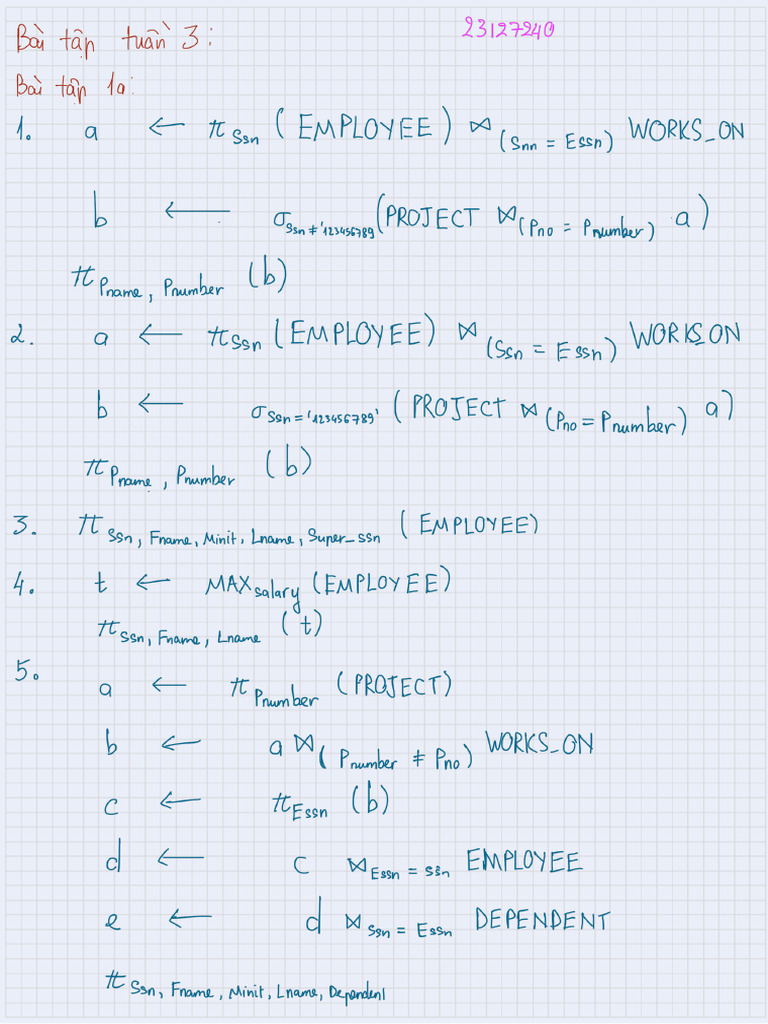 23127240
Bài tập tuần 3:
Bài tập 1a:
1. a ← π Ssn (EMPLOYEE) ⋈ (Snn = Essn) WORKS_ON
b ← σ Ssn ≠ '123456789 (PROJECT ⋈ (Pno = Pnumber) a)
π Pname, Pnumber (b)
2. a ← π Ssn (EMPLOYEE) ⋈ (Ssn = Essn) WORKS_ON
b ← σ Ssn = '123456789' (PROJECT ⋈ (Pno = Pnumber) a)
π Pname, Pnumber (b)
3. π Ssn, Fname, Minit, Lname, Super_ssn (EMPLOYEE)
4. t ← MAX salary (EMPLOYEE)
π Ssn, Fname, Lname (t)
5.
a ← π Pnumber (PROJECT)
b ← a ⋈ (Pnumber ≠ Pno) WORKS_ON
c ← π Essn (b)
d ← c ⋈ Essn = ssn EMPLOYEE
e ← d ⋈ Ssn = Essn DEPENDENT
π Ssn, Fname, Minit, Lname, Dependent